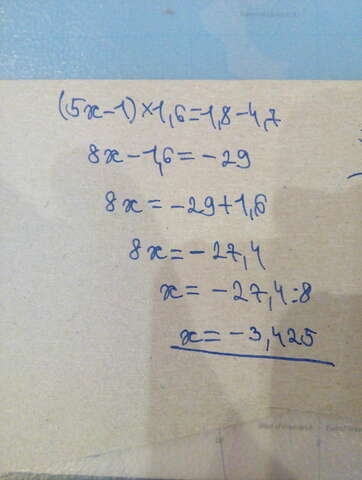 (5x-1)×1,6=1,8-4,7
8x-1,6=-29
8x=-29+1,6
8x=-27,4
x=-27,4:8
x=-3,425